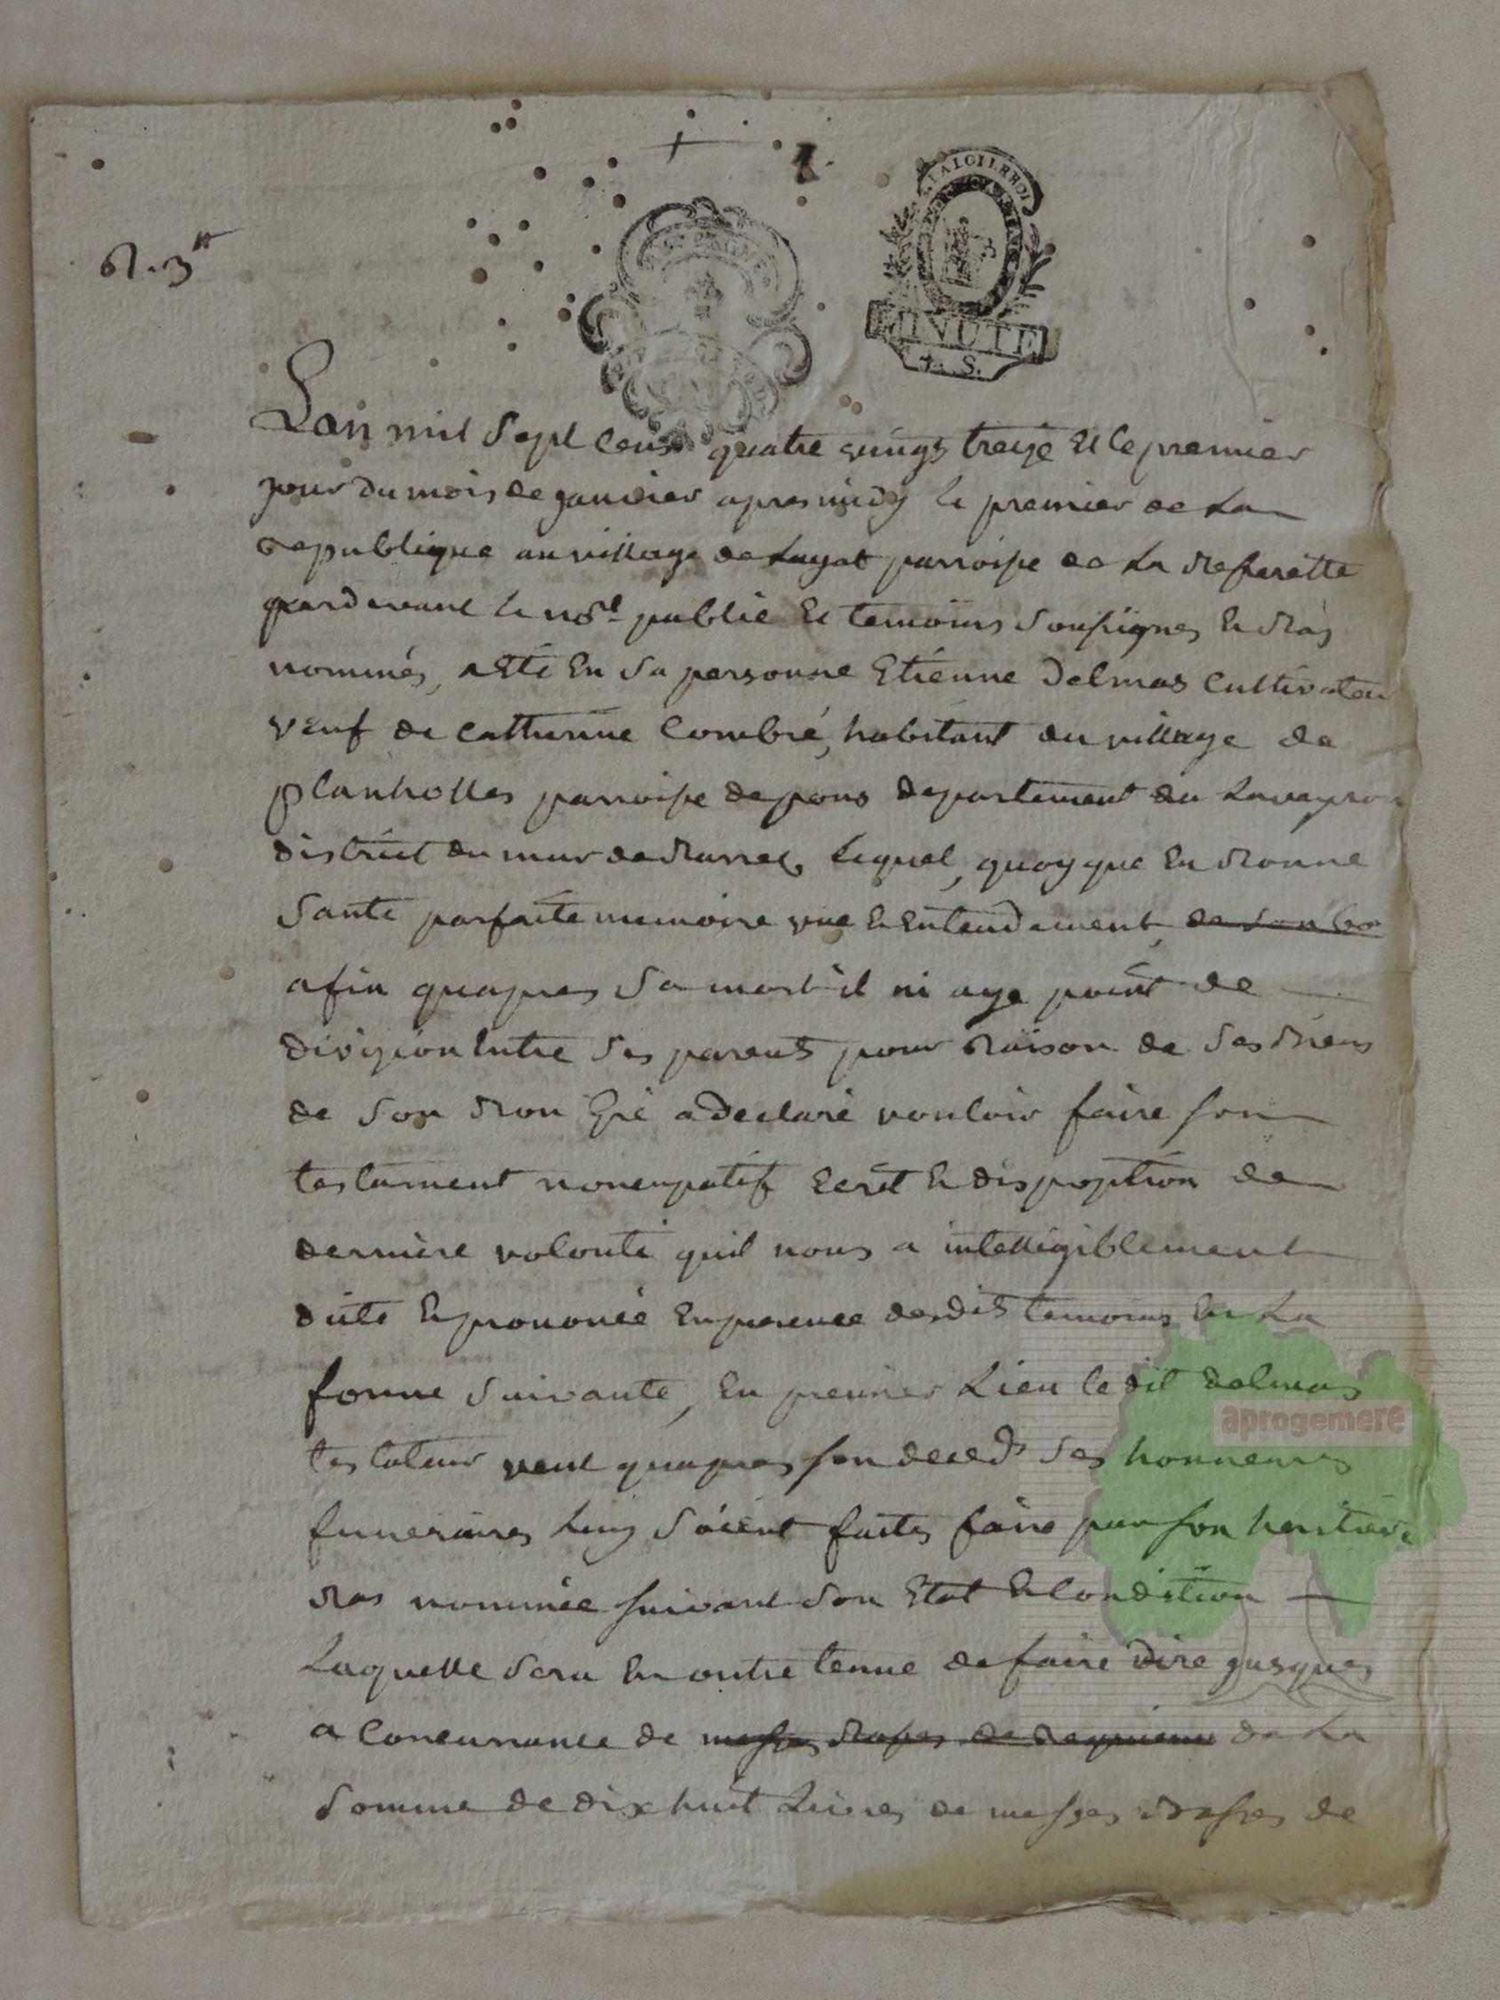 MINUTE
4. S.
Lan mil sept cens quatre vings treize et le premier
jour du mois de janvier apres midy le premier de la
republique au village de Layat parroisse de la Besserette
pardevant le nore public et temoins soussignes en bas
nommés, a été en sa personne Etienne Delmas cultivateur
veuf de Catherine Combre, habitant du village de
planholles parroisse de pons departement du Laveyron
district du mur de Barrez, lequel, quoyque en bonne
sante parfaite memoire vue et entendement, de son bon
afin quapres sa mort il ni aye point de
divizion entre ses parens pour raison de ses biens
de son bon gré a declaré vouloir faire son
testament noncupatif ecrit et disposition de
derniere volonté quil nous a intelligiblement
dite et prononcé en presence desdits temoins en la
forme suivante, en premier lieu le dit delmas
testateur veut quapres son deceds ses honneurs
funeraires luy soient faites faire par son heritiere
bas nommée suivant son etat et condition
laquelle sera en outre tenue de faire dire jusques
a concurrance de messes basses de requiem de la
somme de dix huit livres de messes basses de
aprogemere